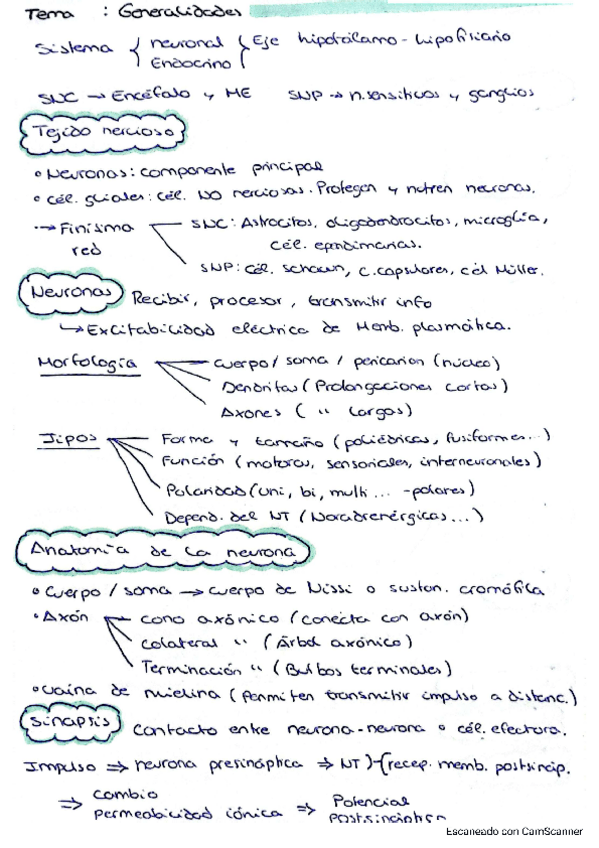 Tema : Generalidades
Sistema { neuronal { Eje hipotálamo-hipofisiario
Endocrino
SNC → Encéfalo y ME SNP → n.sensitivos y ganglios
Tejido nervioso
• Neuronas: componente principal
• Cél. gliales: cél. NO nerviosas. Protegen y nutren neuronas.
→ Finísima red SNC: Astrocitos, oligodendrocitos, microglía,
cél. ependimarias.
SNP: cél. schwan, c.capsulares, cél Müller.
Neuronas Recibir, procesar, transmitir info
↳ Excitabilidad eléctrica de Memb. plasmática.
Morfología Cuerpo / soma / pericarion (núcleo)
Dendritas (Prolongaciones cortas)
Axones ( " largos)
Tipos Forma y tamaño (poliédricas, fusiformes...)
Función (motoras, sensoriales, interneuronales)
Polaridad (uni, bi, multi ... -polares)
Depend. del NT (Noradrenérgicas...)
Anatomía de la neurona
• Cuerpo / soma → cuerpo de Nissl o sustan. cromófila
• Axón cono axónico (conecta con axón)
colateral " (Árbol axónico)
Terminación " (Bulbos terminales)
• Vaina de mielina (Permiten transmitir impulso a distanc.)
Sinapsis Contacto entre neurona-neurona o cél. efectora.
Impulso ⇒ neurona presináptica ⇒ NT)-(recep. memb. postsinap.
⇒ Cambio permeabilidad iónica ⇒ Potencial postsináptico
Escaneado con CamScanner